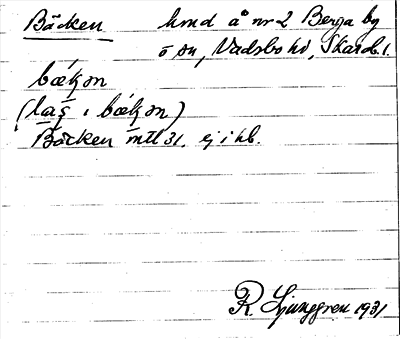 Bäcken hmd å nr 2 Berga by
ö sn, Vadsbo hd, Skarab. l.
bœ́ḱən
(laṣ i bœ́ḱən)
Bäcken mtl 31. ej i hb.
R Ljunggren 1931